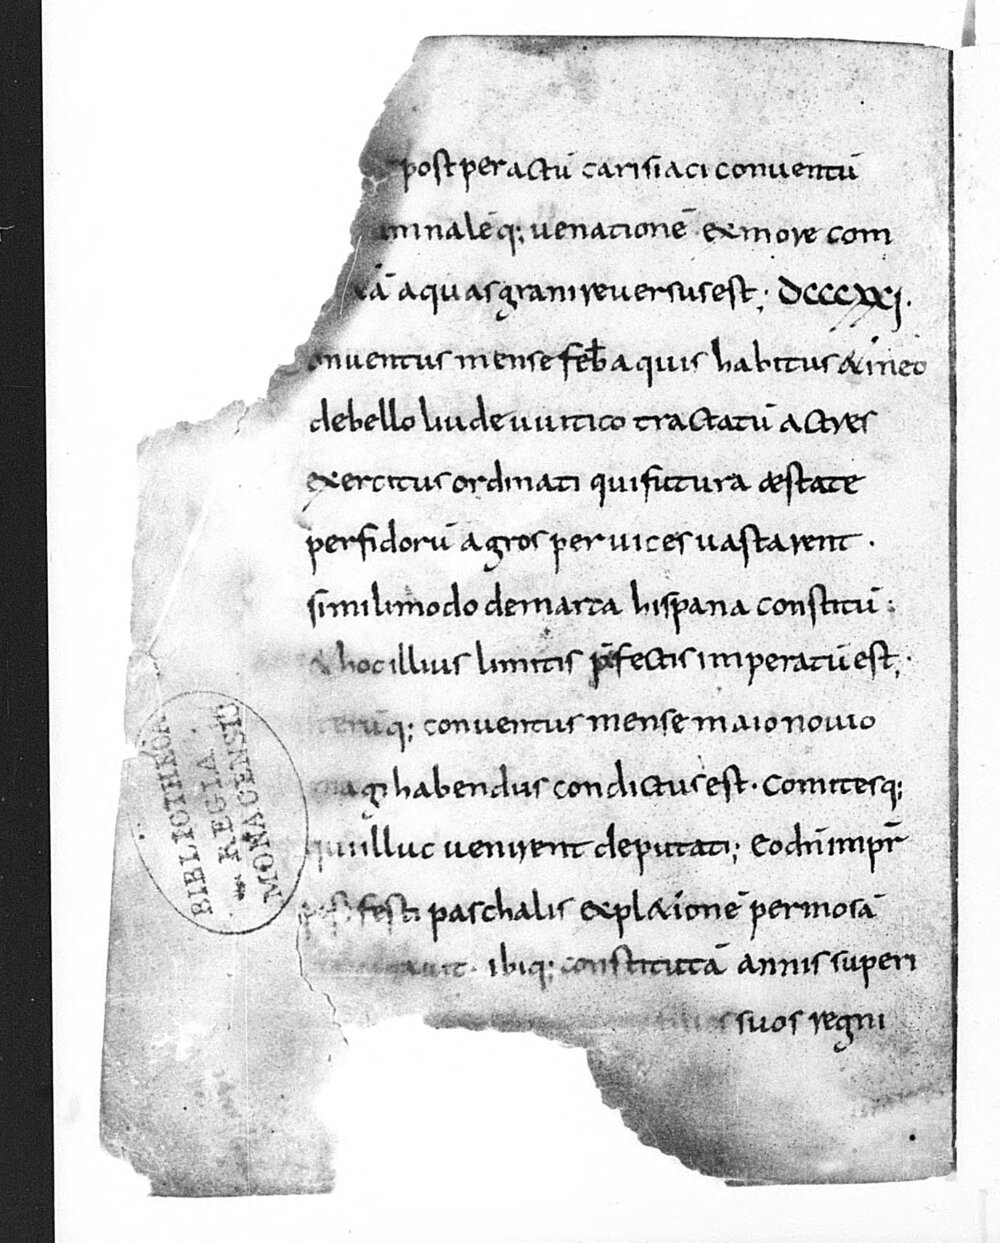 post peractū carisiaci conuentū
umnalēq; uenationē ex more com
aquasgrani reuersus est; DCCCXXI.
onuentus mense feb̄ aquis habitus & in eo
de bello liudeuuitico tractatū ac tres
exercitus ordinati qui futura æstate
perfidorū agros per uices uastarent.
simili modo de marca hispana constitū:
& hoc illius limitis p̄fectis imperatū est;
terūq; conuentus mense maio nouio
magi habendus condictus est. Comitesq;
qui illuc uenirent deputati; Eo dn̄ imp̄r
post festi paschalis expl&ionē per mosā
auit. ibiq; constitutā annis superi
suos regni
BIBLIOTHECA
REGIA
MONACENSIS